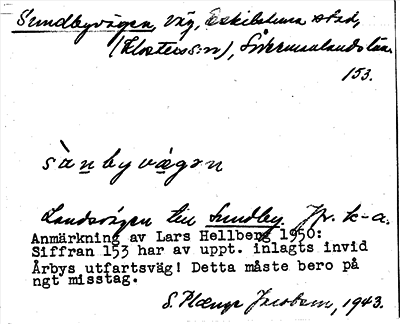 Sundbyvägen, väg, Eskilstuna stad,
(Klosters s:n), Södermanlands län.
153.
sànbyvägen
Landsvägen till Sundby. Jfr. k-a.
Anmärkning av Lars Hellberg 1950:
Siffran 153 har av uppt. inlagts invid
Årbys utfartsväg! Detta måste bero på
ngt misstag.
S. Jacobson, 1943.